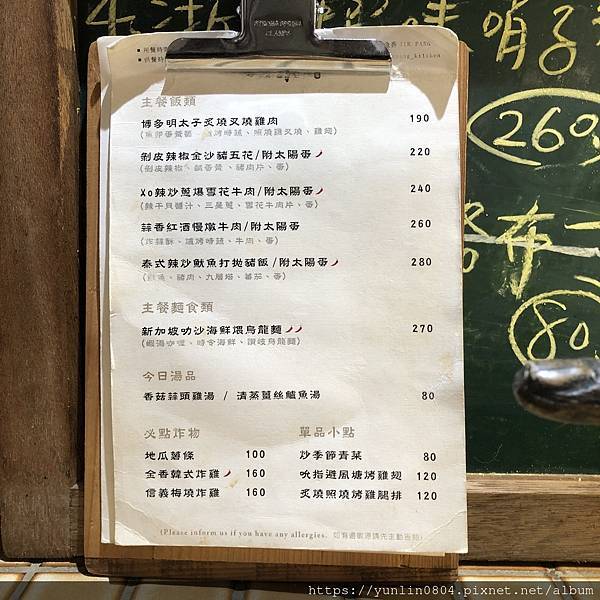 主餐飯類
博多明太子炙燒叉燒雞肉 190
剝皮辣椒金沙豬五花/附太陽蛋 220
(剝皮辣椒、鹹蛋黃、豬肉片、蛋)
Xo辣炒蔥爆雪花牛肉/附太陽蛋 240
(辣干貝醬汁、三星蔥、雪花牛肉片、蛋)
蒜香紅酒慢燉牛肉/附太陽蛋 260
(炸蒜酥、爐烤時蔬、牛肉、蛋)
泰式辣炒魷魚打拋豬飯/附太陽蛋 280
(魷魚、豬肉、九層塔、番茄、蛋)
主餐麵食類
新加坡叻沙海鮮煨烏龍麵 270
(蝦湯咖哩、時令海鮮、讚岐烏龍麵)
今日湯品
香菇蒜頭雞湯 / 清蒸薑絲鱸魚湯 80
必點炸物
地瓜薯條 100
全香韓式炸雞 160
信義梅燒炸雞 160
單品小點
炒季節青菜 80
吮指避風塘烤雞翅 120
炙燒照燒烤雞腿排 120
(Please inform us if you have any allergies. 如有過敏源請先主動告知)
260
80
https://yunlin0804.pixnet.net/album